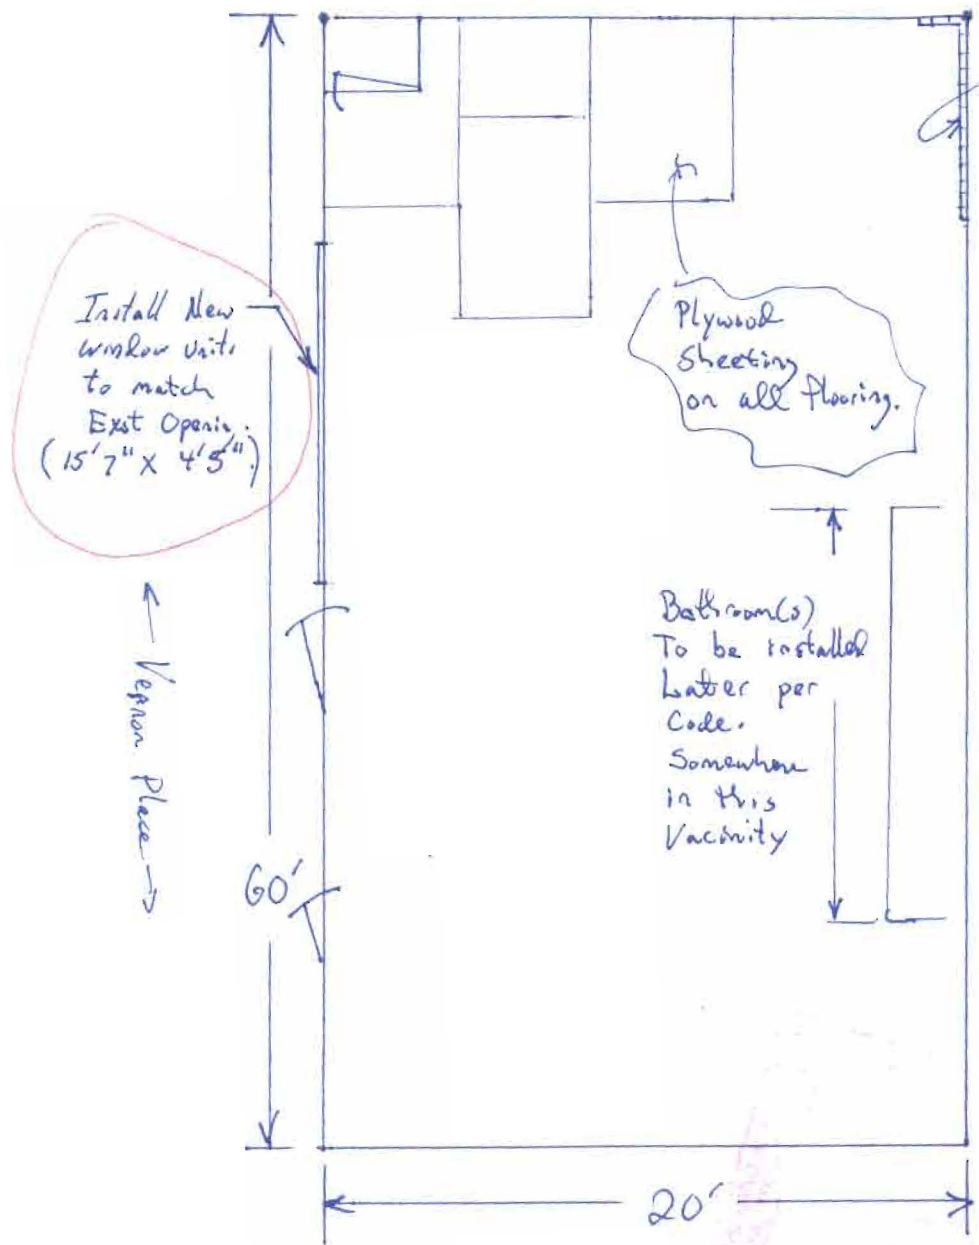 Install New
window units
to match
Exst Openin.
(15'7" X 4'5")
Plywood
Sheeting
on all flooring.
Bathroom(s)
To be installed
Latter per
Code.
Somewhere
in this
Vacinity
← Vernon Place →
60'
20'